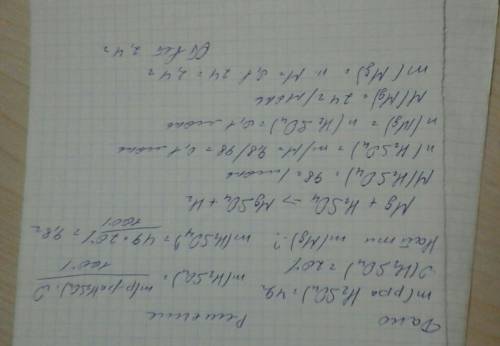 Дано Решение
m(р-ра H₂SO₄) = 49г m(H₂SO₄) = m(р-ра H₂SO₄)·ω / 100%
ω(H₂SO₄) = 20%
Найти m(Mg)-? m(H₂SO₄) = 49·20% / 100% = 9,8г
Mg + H₂SO₄ → MgSO₄ + H₂
M(H₂SO₄) = 98г/моль
n(H₂SO₄) = m/M = 9,8/98 = 0,1 моль
n(Mg) = n(H₂SO₄) = 0,1 моль
M(Mg) = 24г/моль
m(Mg) = n·M = 0,1·24 = 2,4г
Ответ 2,4г